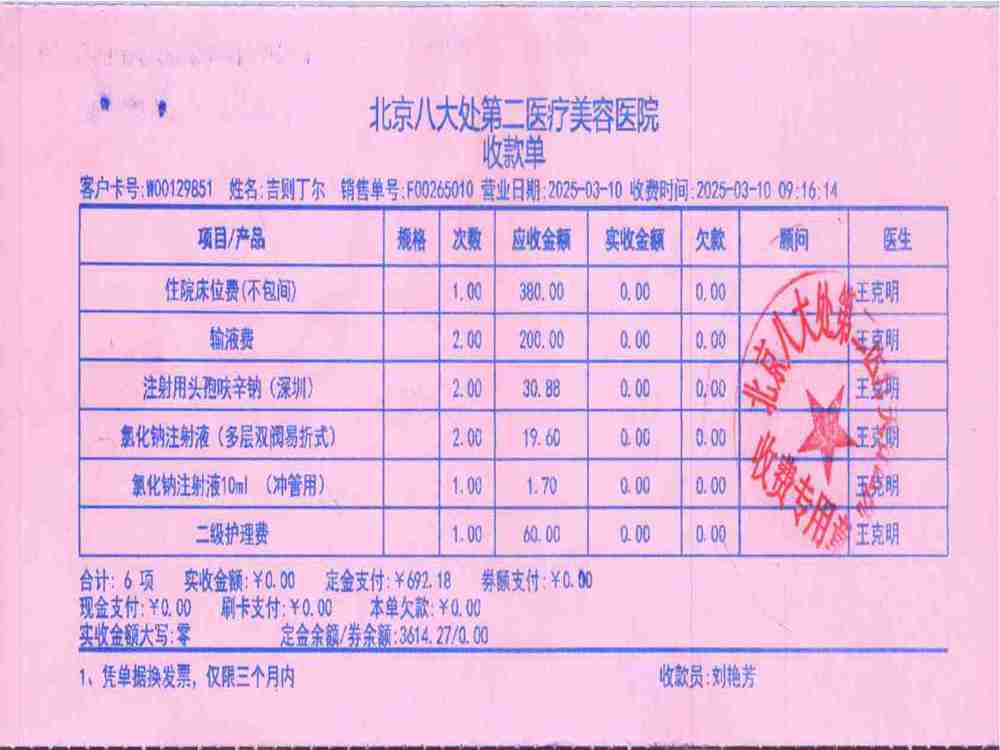 北京八大处第二医疗美容医院
收款单
客户卡号:W00129851 姓名:吉则丁尔 销售单号:F00265010 营业日期:2025-03-10 收费时间:2025-03-10 09:16:14
项目/产品 规格 次数 应收金额 实收金额 欠款 顾问 医生
住院床位费(不包间) 1.00 380.00 0.00 0.00 王克明
输液费 2.00 200.00 0.00 0.00 王克明
注射用头孢呋辛钠（深圳） 2.00 30.88 0.00 0.00 王克明
氯化钠注射液（多层双阀易折式） 2.00 19.60 0.00 0.00 王克明
氯化钠注射液10ml （冲管用） 1.00 1.70 0.00 0.00 王克明
二级护理费 1.00 60.00 0.00 0.00 王克明
北京八大处第二医
收费专用章
合计: 6 项 实收金额:￥0.00 定金支付:￥692.18 券额支付:￥0.00
现金支付:￥0.00 刷卡支付:￥0.00 本单欠款:￥0.00
实收金额大写:零 定金余额/券余额:3614.27/0.00
1、凭单据换发票，仅限三个月内 收款员:刘艳芳